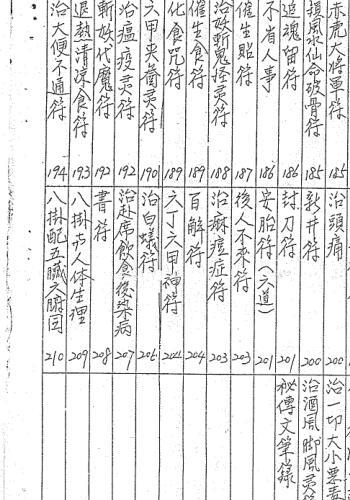 赤虎大將軍符 185
鎮風水仙命破骨符 185
追魂留符 186
不省人事 186
催生貼符 187
治改斬鬼怪灵符 188
催生食符 189
化食咒符 189
六甲夹衛灵符 190
治瘟疫灵符 192
斬妖代魔符 192
退熱清涼食符 193
治大便不通符 194
治頭痛 200
新井符 200
封刀符 201
安胎符(六道) 201
後人不來符 203
治痳瘟症符 203
百解符 204
六丁六甲神符 204
治白蟻符 206
治赴席飲食後染病 207
書符 208
八掛与人体生理 209
八掛配五臟六腑因 210
治一切大小
治酒風脚風灵符
祕傳文筆錄